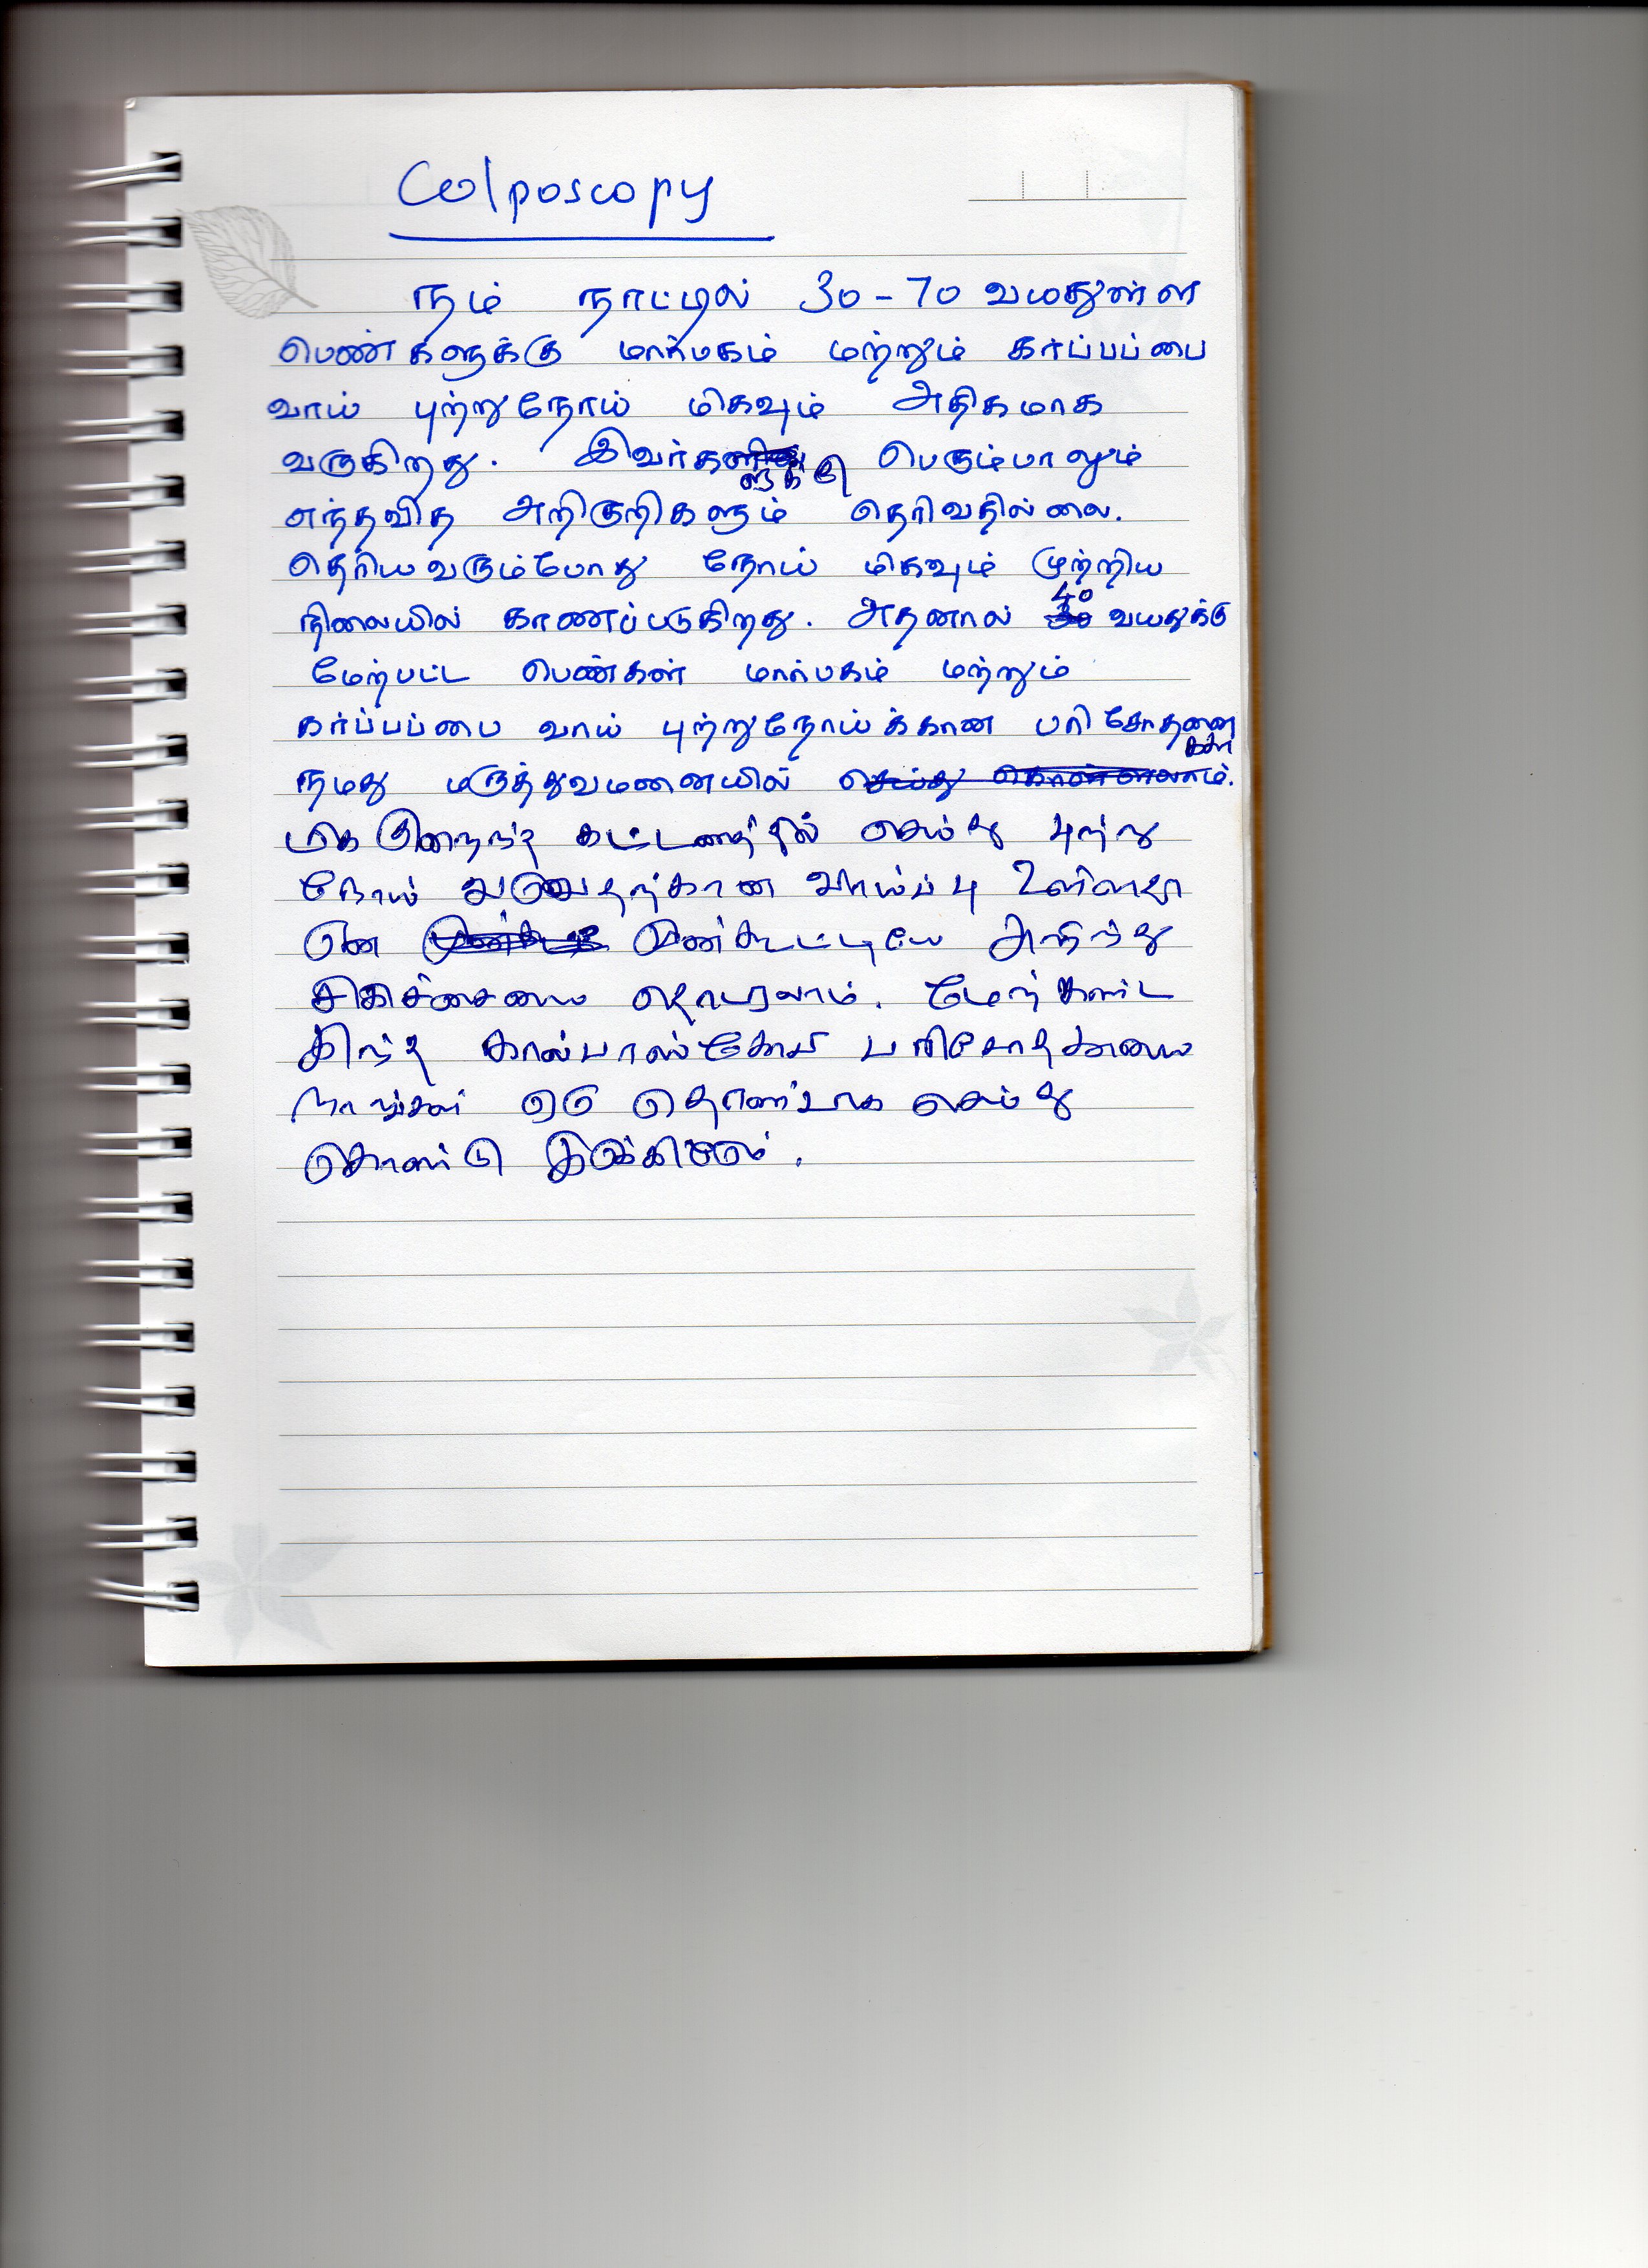 Colposcopy
நம் நாட்டில் 30-70 வயதுள்ள
பெண்களுக்கு மார்பகம் மற்றும் கர்ப்பப்பை
வாய் புற்றுநோய் மிகவும் அதிகமாக
வருகிறது. இவர்களுக்கு பெரும்பாலும்
எந்தவித அறிகுறிகளும் தெரிவதில்லை.
தெரியவரும்போது நோய் மிகவும் முற்றிய
நிலையில் காணப்படுகிறது. அதனால் 40 வயதுக்கு
மேற்பட்ட பெண்கள் மார்பகம் மற்றும்
கர்ப்பப்பை வாய் புற்றுநோய்க்கான பரிசோதனை
நமது மருத்துவமனையில்
மிக குறைந்த கட்டணத்தில் செய்து புற்று
நோய் வருவதற்கான வாய்ப்பு உள்ளதா
என முன்கூட்டியே அறிந்து
சிகிச்சையை தொடரலாம். மேற்கண்ட
இந்த கால்பாஸ்கோபி பரிசோதனையை
நாங்கள் ஒரு தொண்டாக செய்து
கொண்டு இருக்கிறோம்.